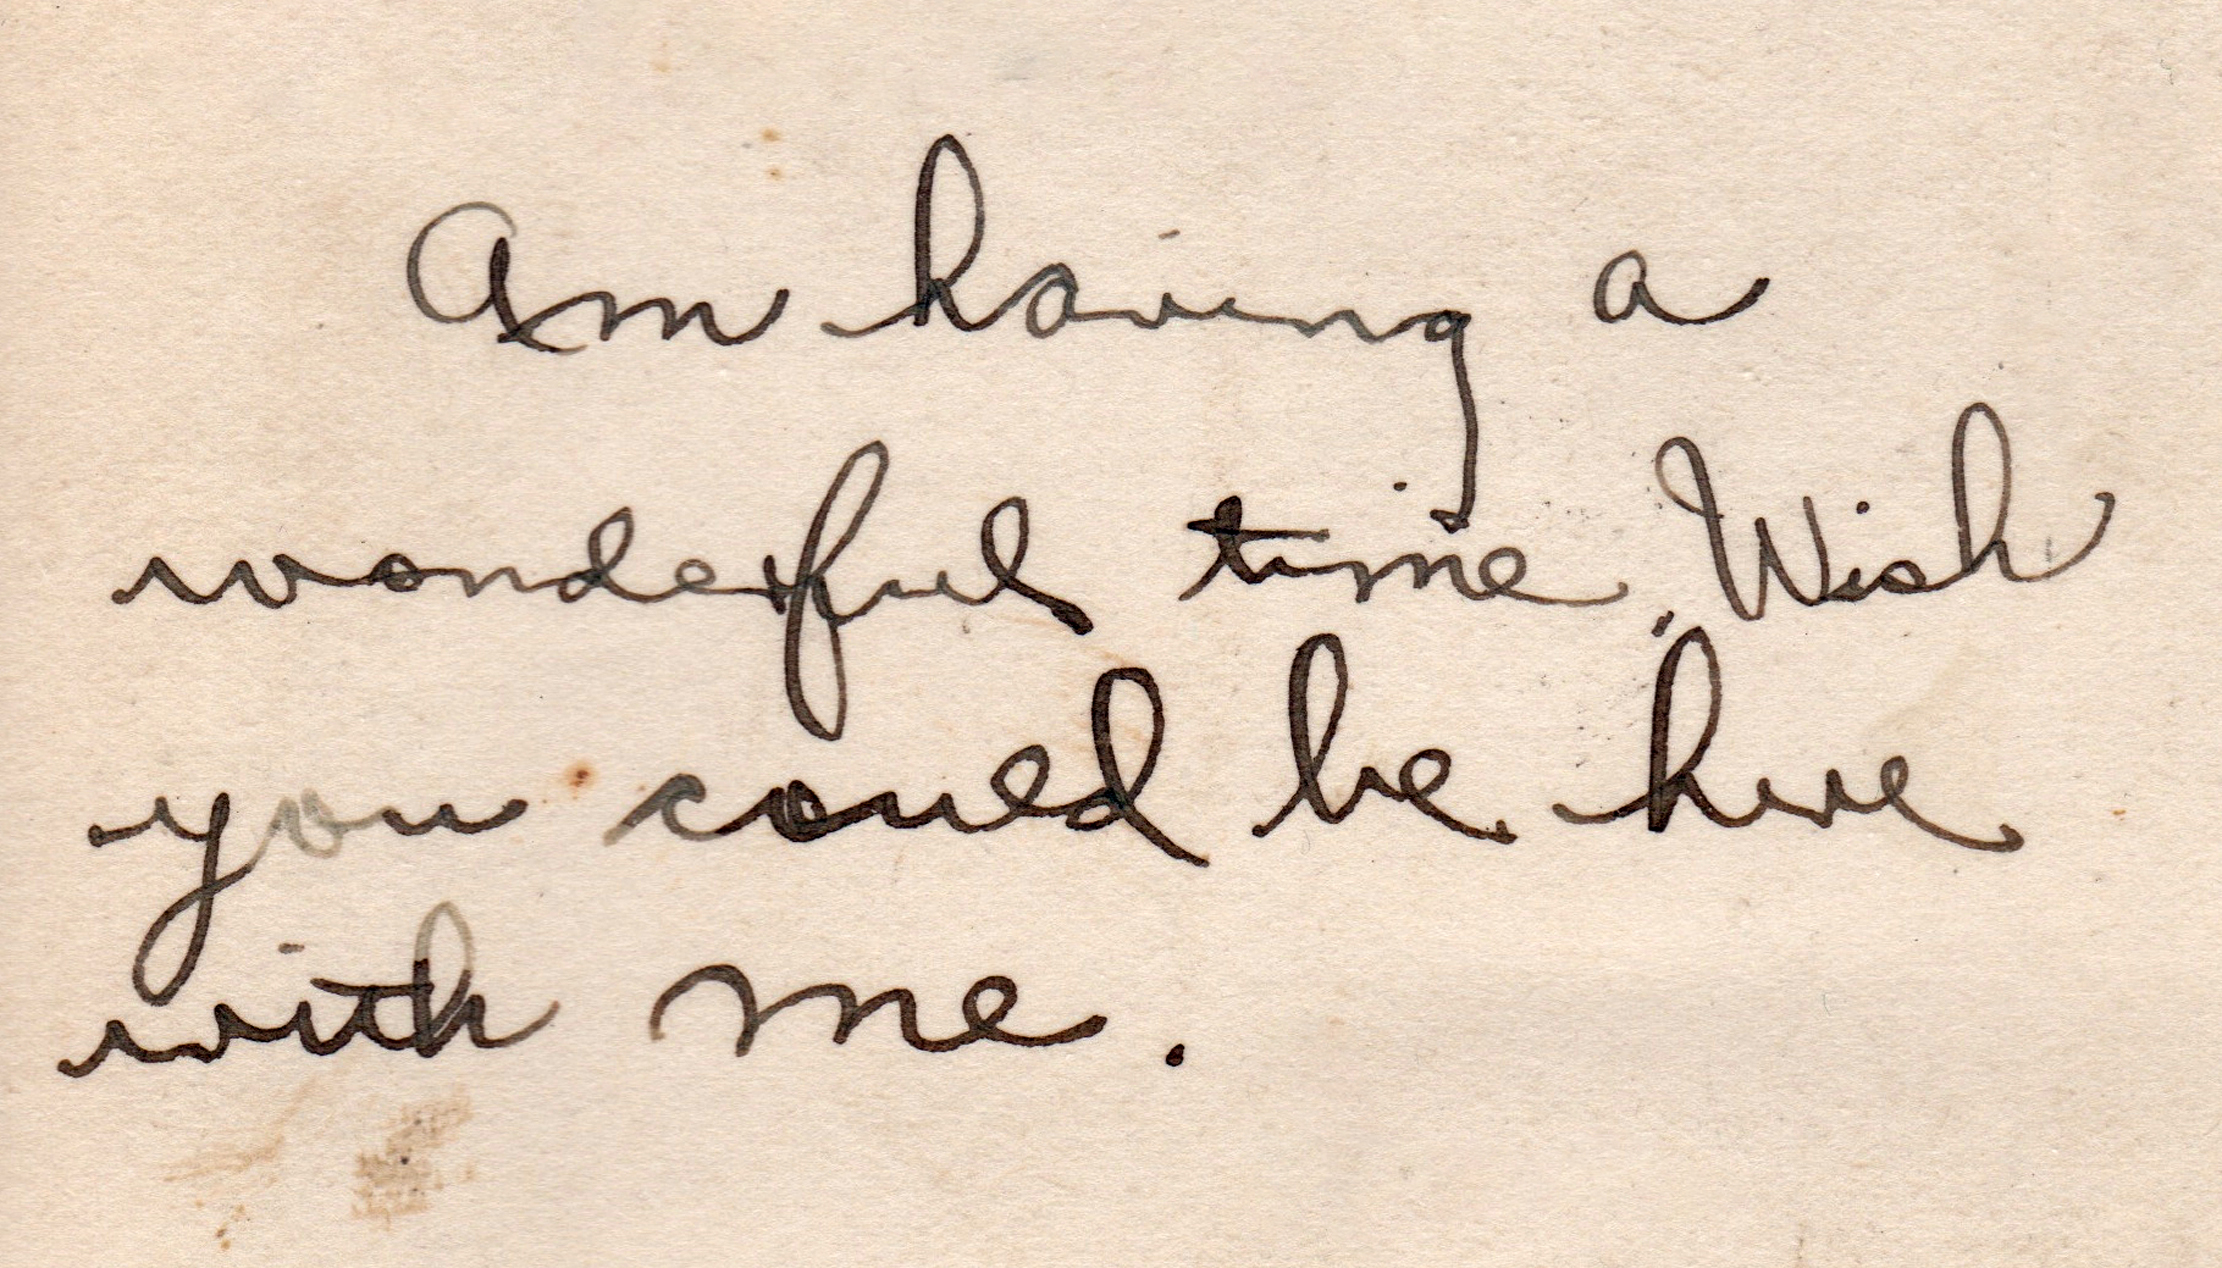 Am having a
wonderful time. Wish
you could be here
with me.